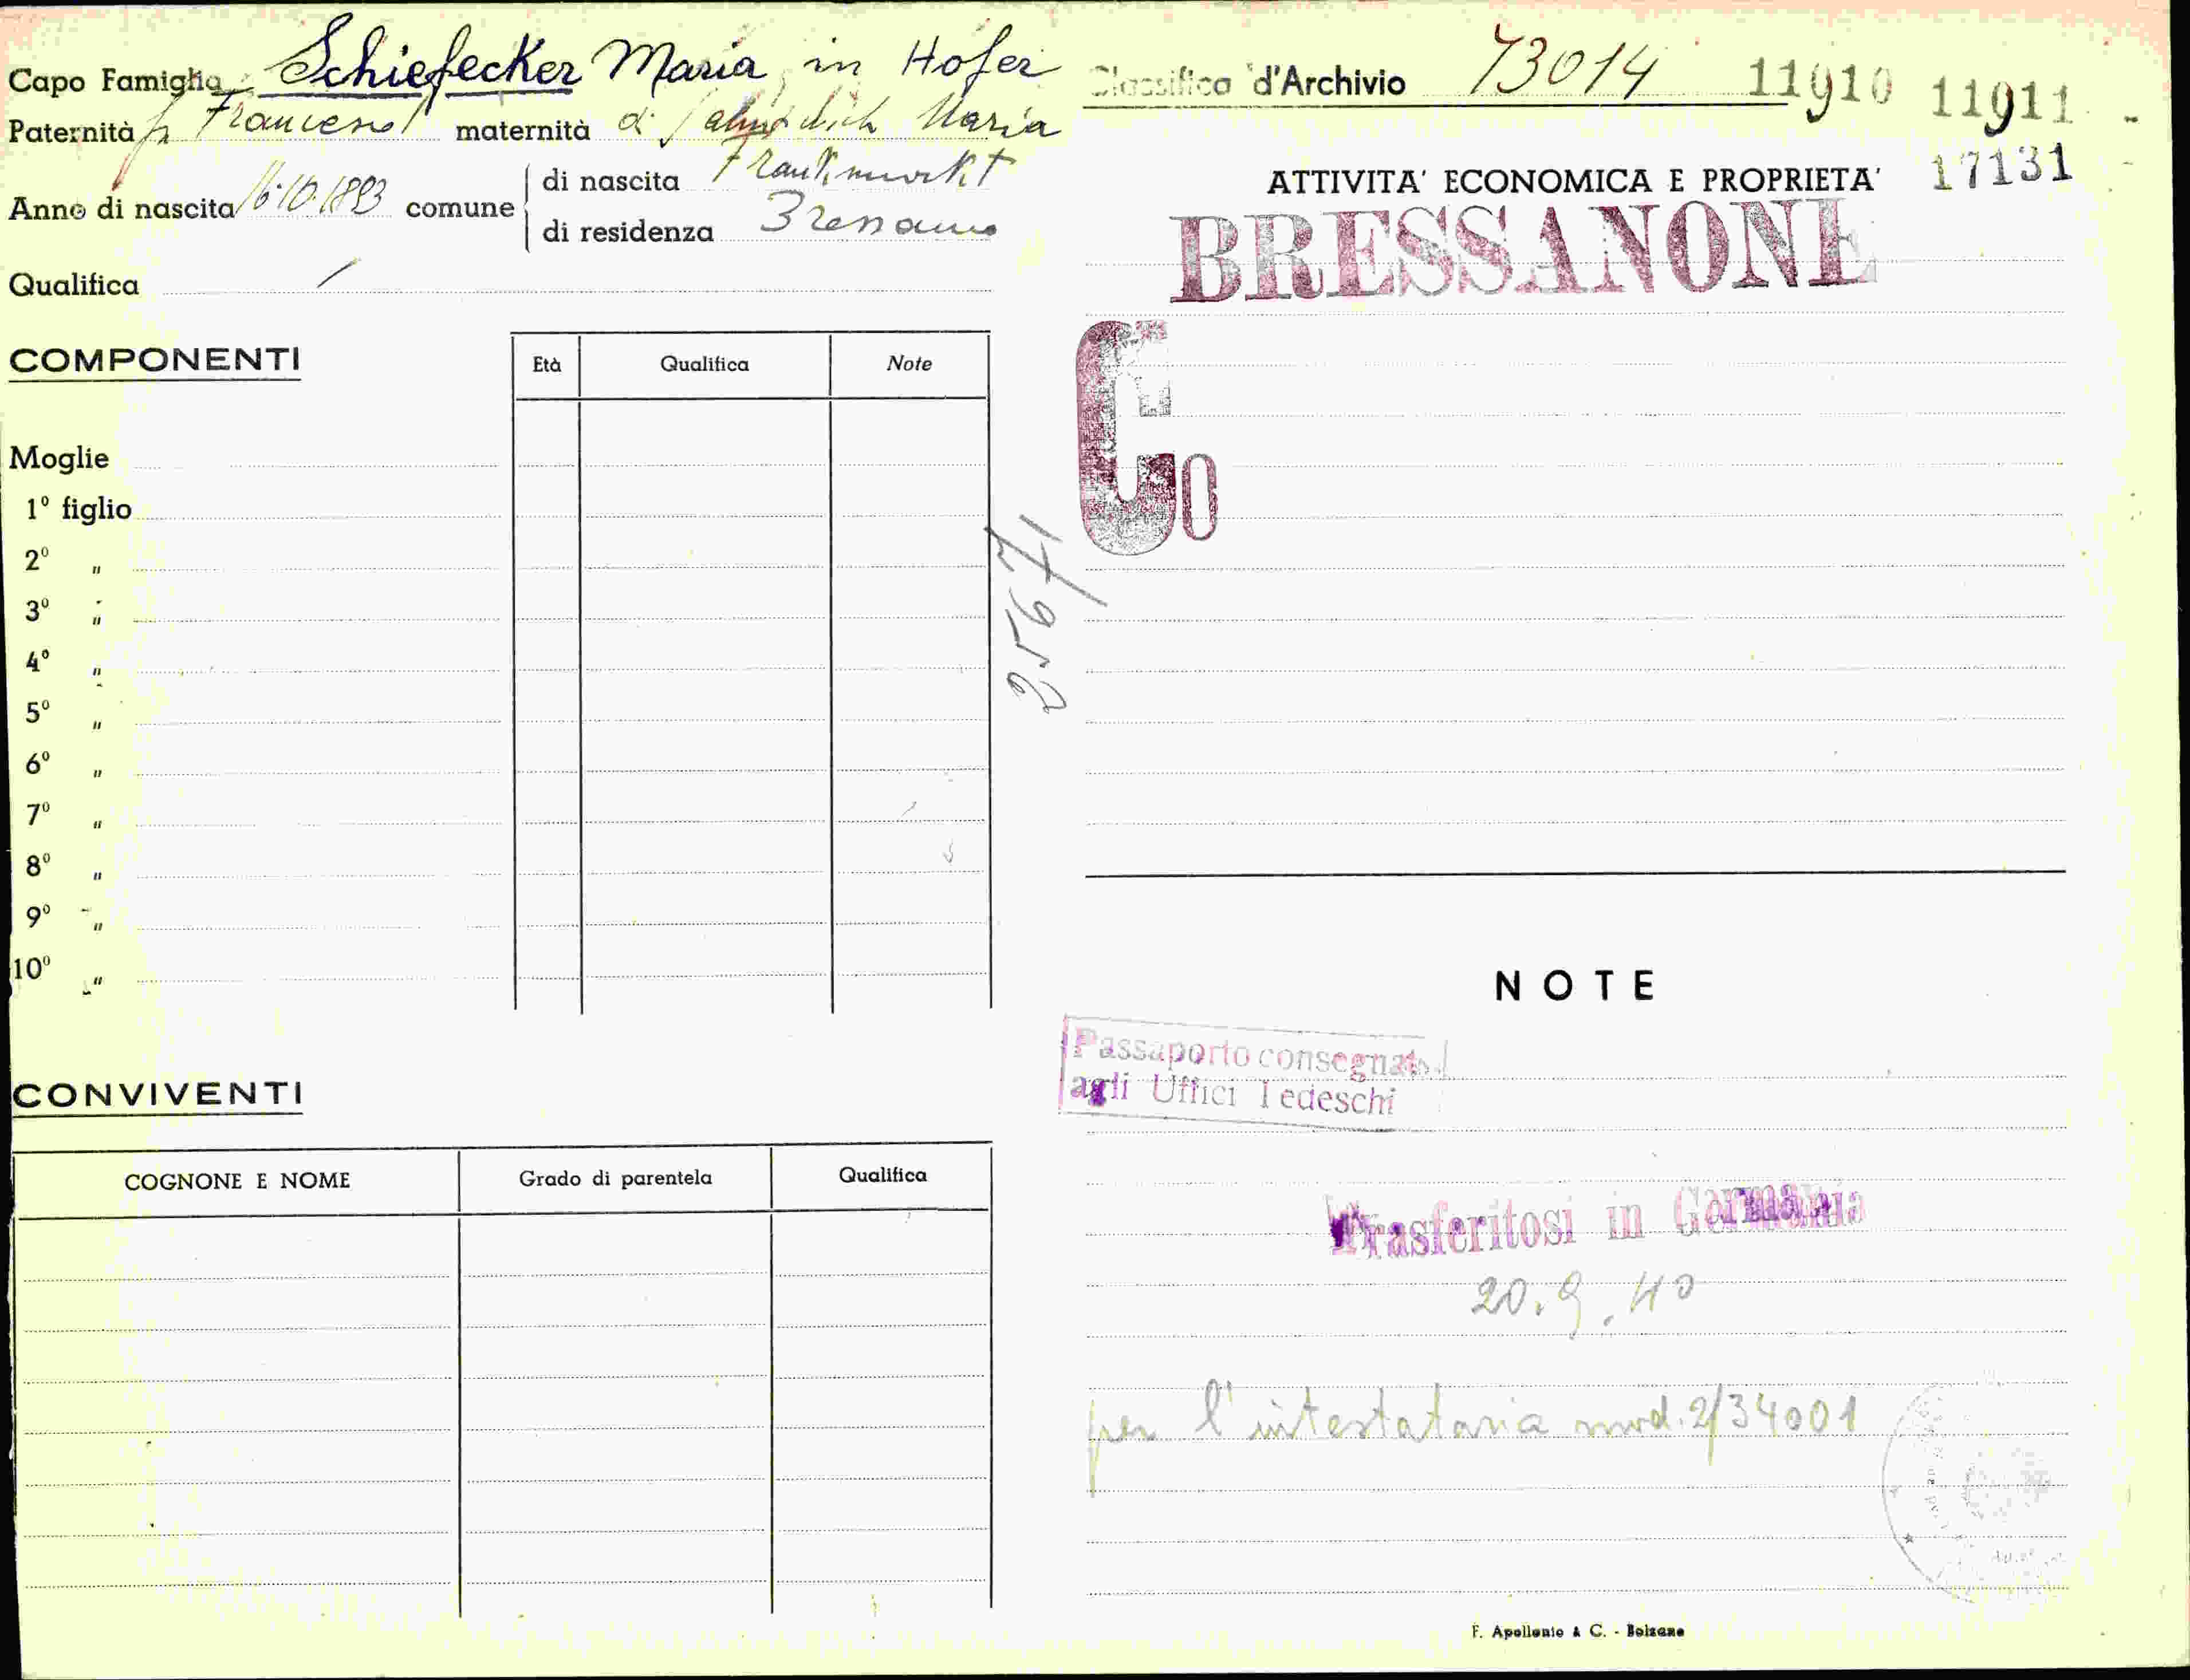 Capo Famiglia Schiefecker Maria in Hofer
Paternità fu Francesco maternità di Maria
Anno di nascita 16.10.1893 comune
di nascita Frankmarkt
di residenza Bressanone
Qualifica /
COMPONENTI
Età Qualifica Note
Moglie
1° figlio
2° "
3° "
4° "
5° "
6° "
7° "
8° "
9° "
10° "
CONVIVENTI
COGNONE E NOME Grado di parentela Qualifica
25671
Classifica d'Archivio 73014 11910 11911
17131
ATTIVITA' ECONOMICA E PROPRIETA'
BRESSANONE
Co
NOTE
Passaporto consegnato
agli Uffici Tedeschi
Trasferitosi in Germania
20.9.40
per l'intestataria mod. 2/34001
F. Apollonio & C. - Bolzano